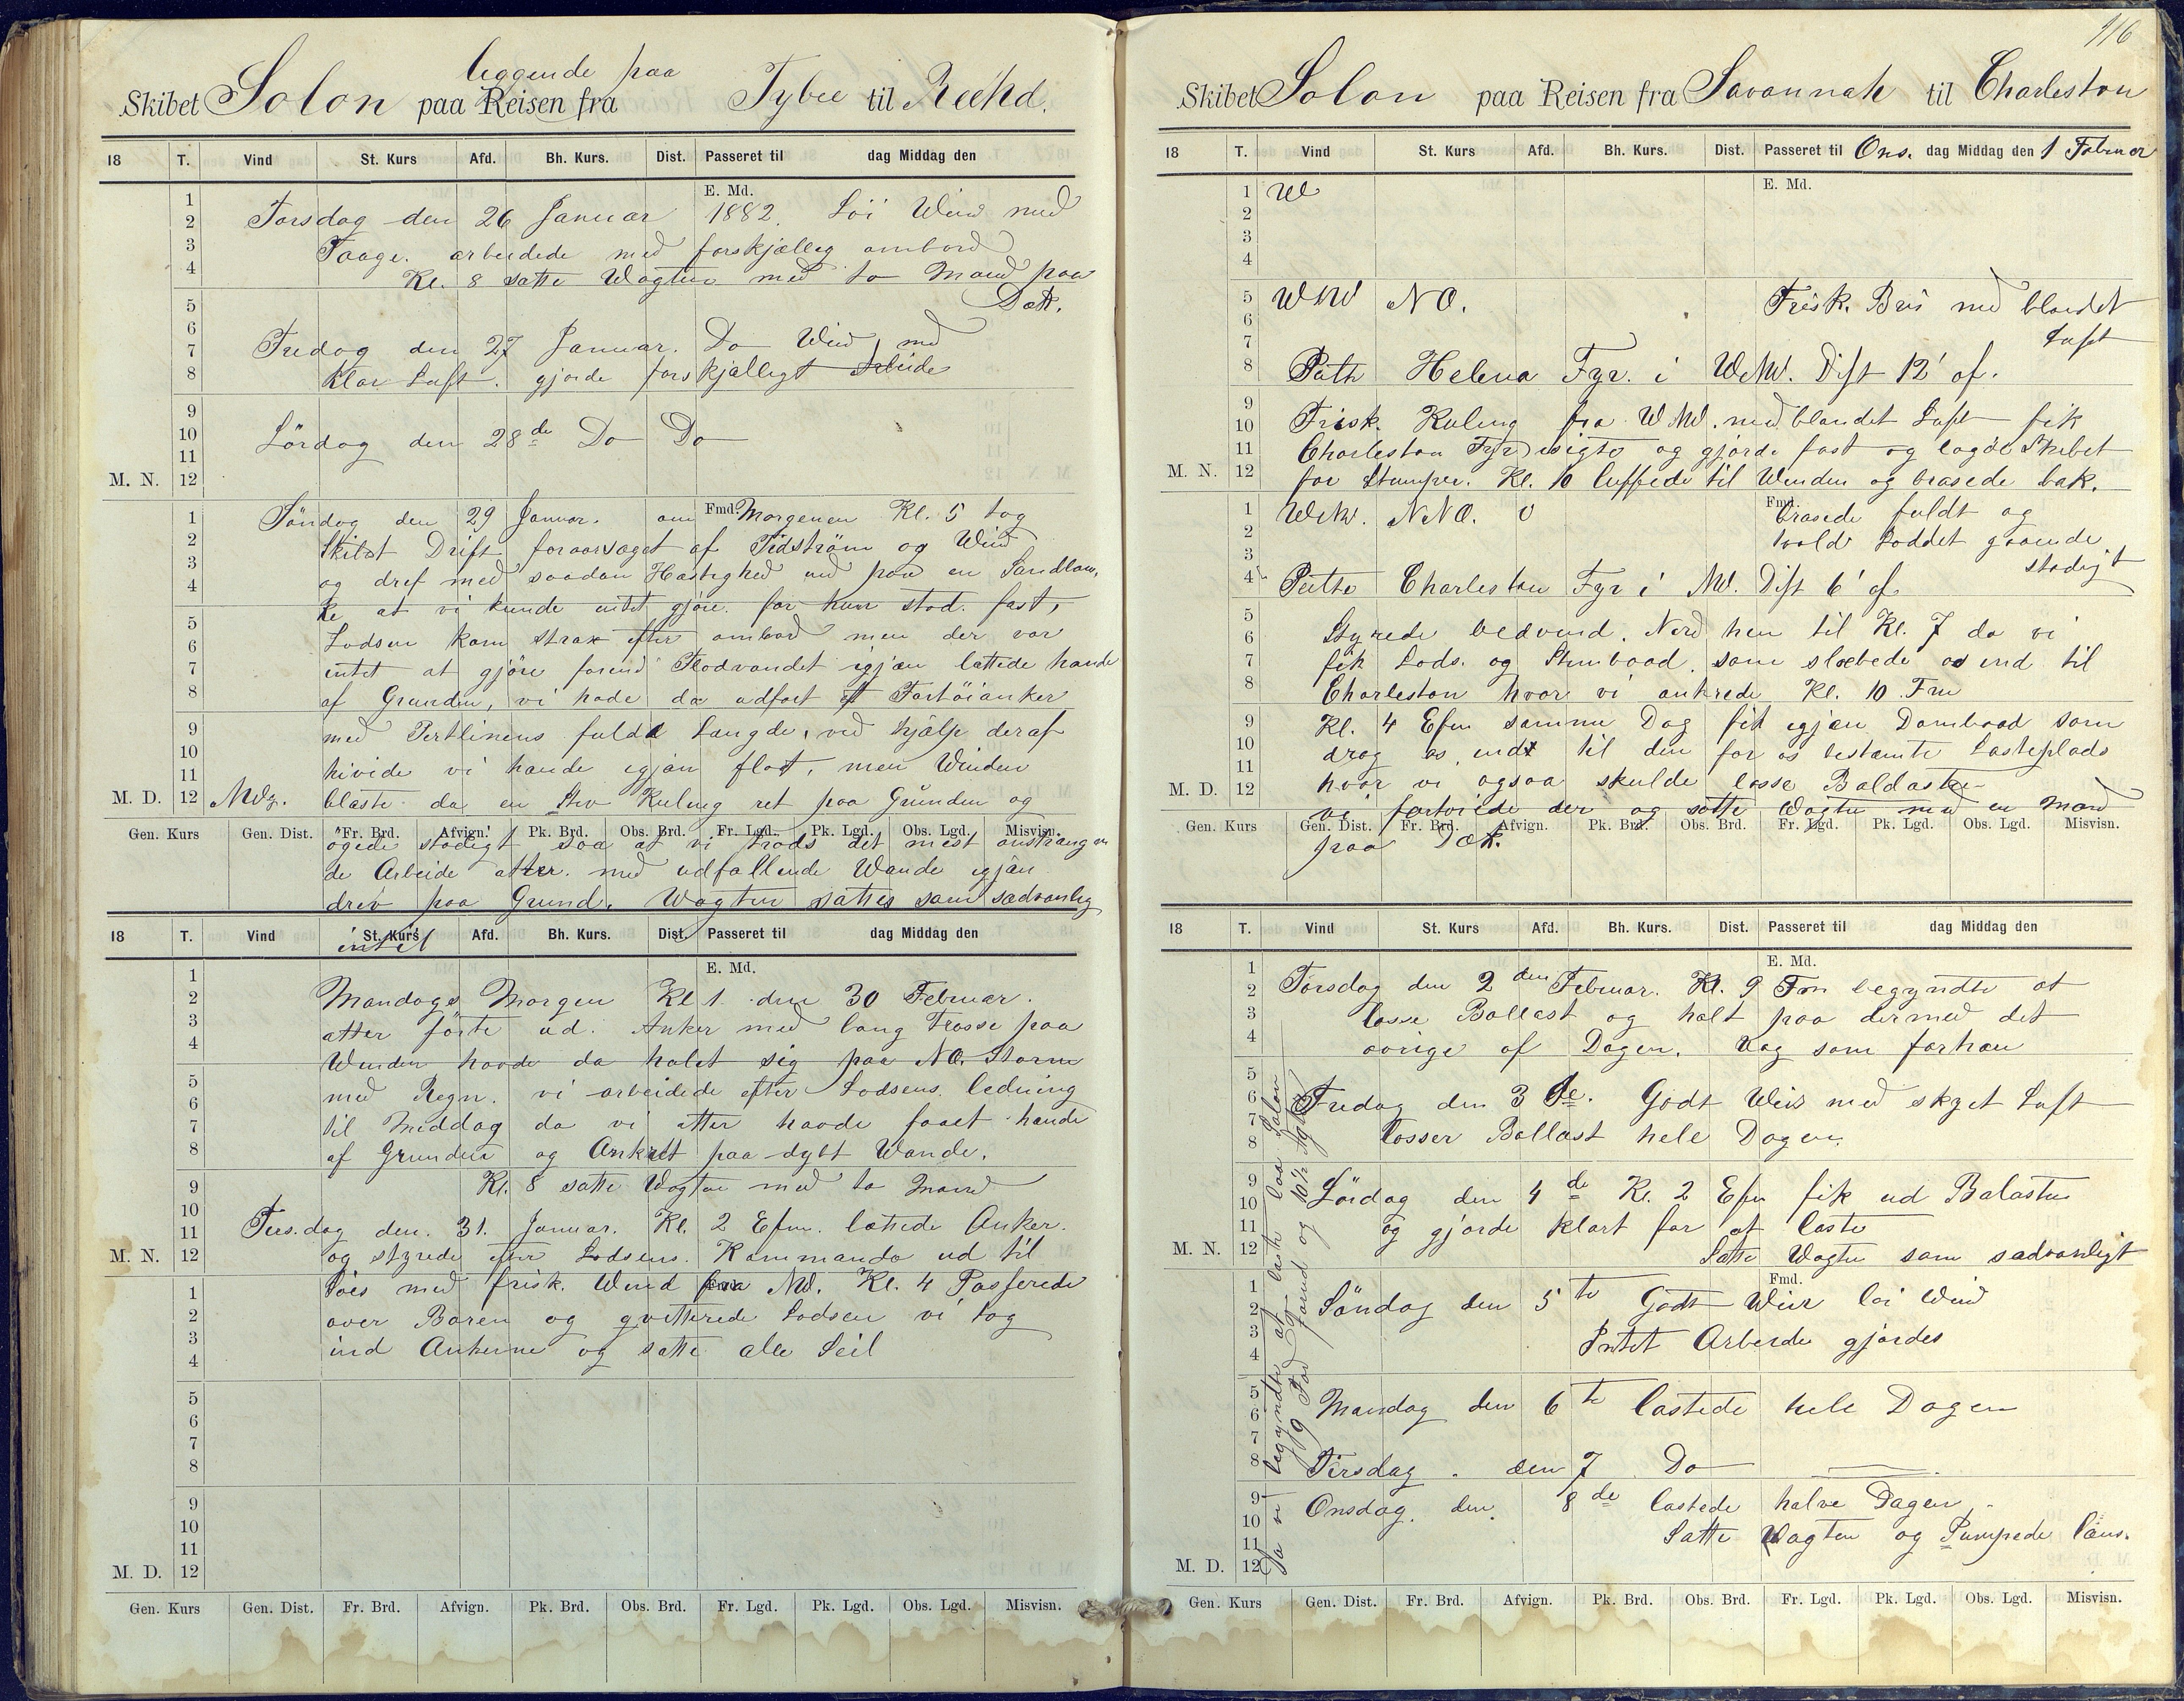 116
leggende paa
Skibet Solon paa Reisen fra Tybee til Reehd.
18 T. Vind St. Kurs Afd. Bh. Kurs. Dist. Passeret til dag Middag den
E. Md.
Torsdag den 26 Januar 1882. Löi Wind med
Taage. arbeidede med forskjælleg ombord
Kl. 8 satte Wagten med to Mand paa
Dæk.
Fredag den 27 Januar. Do Wind med
klar Luft. gjorde forskjælligt Arbeide
Lördag den 28de Do Do
M. N.
Söndag den 29 Januar. om Fmd. Morgenen Kl. 5 tog
Skibet Drift foraarsaget af Tidström og Wind
og dref med saadan Hastighed ind paa en Sandban,
ke at vi kunde intet gjöre for hun stod fast,
Lodsen kom strax efter ombord men der var
intet at gjöre forend Flodvandet igjæn lættede hande
af Grunden, vi hade da udfort et Fortöianker
med Pertlinens fulde Længde, ved hjælp deraf
hivide vi hande igjæn flot, men Winden
M. D. NWz. blæste da en stiv Kuling ret paa Grunden og
Gen. Kurs Gen. Dist. Fr. Brd. Afvign. Pk. Brd. Obs. Brd. Fr. Lgd. Pk. Lgd. Obs. Lgd. Misvisn.
ögede stadigt saa at vi trods det mest anstrængen
de Arbeide atter med udfallende Wande igjæn
drev paa Grund. Wagten sattes som sædvanlig
18 T. Vind St. Kurs Afd. Bh. Kurs. Dist. Passeret til dag Middag den
E. Md.
Mandags Morgen Kl 1 den 30 Februar.
atter förte ud. Anker med lang Trosse paa
Winden havde da halet sig paa NO. Storm
med Regn. vi arbeidede efter Lodsens ledning
til Middag da vi atter havde faaet hande
af Grunden og Ankret paa dybt Wande.
Kl. 8 satte Wagten med to Mand
Tirs.dag den 31. Januar. Kl. 2 Efm. lættede Anker.
M. N. og styrede efter Lodsens Kommando ud til
Söes med frisk. Wind fra NW. Kl. 4 Passerede
over Baren og qvitterede Lodsen vi tog
ind Ankerne og satte alle Seil
M. D.
Gen. Kurs Gen. Dist. Fr. Brd. Afvign. Pk. Brd. Obs. Brd. Fr. Lgd. Pk. Lgd. Obs. Lgd. Misvisn.
Skibet Solon paa Reisen fra Savannah til Charleston
18 T. Vind St. Kurs Afd. Bh. Kurs. Dist. Passeret til Ons. dag Middag den 1 Februar
E. Md.
W
WNW NO. Frisk. Bris med blandet
Luft
Peilte Helena Fyr. i WNW. Dist 12' af.
Frisk. Kuling fra WNW. med blandet Luft fik
Charleston Fyr isigte og gjorde fast og lagde Skibet
M. N. for Stumper. Kl. 10 luffede til Winden og brasede bak.
WNW. NNO. 0 Fmd. brasede fuldt og
holdt Loddet gaaende
stadigt
Peilte Charleston Fyr i NW. Dist 6' af.
Styrede bedvind. Nord hen til Kl. 7 da vi
fik Lods. og Stimbaad. som slæbede os ind til
Charleston hvor vi ankrede Kl. 10 Fm
Kl. 4 Efm samme Dag fik igjæn Dambaad som
drog os ind til den for os bestemte Lasteplads
M. D. hvor vi ogsaa skulde losse Baldasten
vi fortoiede der og satte Wagten med en Mand
Gen. Kurs Gen. Dist. Fr. Brd. Afvign. Pk. Brd. Obs. Brd. Fr. Lgd. Pk. Lgd. Obs. Lgd. Misvisn.
paa Dæk.
18 T. Vind St. Kurs Afd. Bh. Kurs. Dist. Passeret til dag Middag den
E. Md.
Torsdag den 2den Februar. Kl. 9 Fm begyndte at
losse Ballast og holt paa dermed det
ovrige af Dagen. Wag som forhæn
Fredag den 3de. Godt Weir med skyet Luft
Losser Ballast hele Dagen.
Lördag den 4de Kl. 2 Efm fik ud Balasten
og gjorde klart for at laste
M. N. Satte Wagten som sædvanligt
Fmd.
Söndag den 5te Godt Weir löi Wind
Intet Arbeide gjordes
Mandag den 6te lastede hele Dagen
Tirsdag. den 7 Do
Onsdag. den. 8de lastede halve Dagen
Satte Wagten og Pumpede læns.
M. D.
Gen. Kurs Gen. Dist. Fr. Brd. Afvign. Pk. Brd. Obs. Brd. Fr. Lgd. Pk. Lgd. Obs. Lgd. Misvisn.
Da vi begyndte at laste laa Solon
9 Fod forud og 10½ Agter